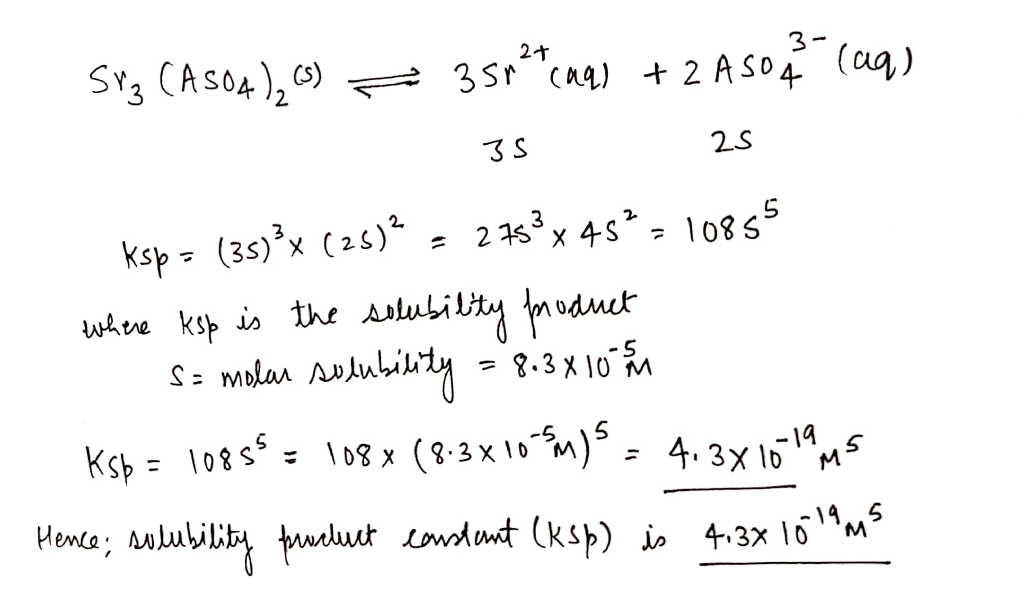 Sr₃(AsO₄)₂(s) ⇌ 3Sr²⁺(aq) + 2AsO₄³⁻(aq)
3S 2S
Ksp = (3S)³ x (2S)² = 27S³ x 4S² = 108S⁵
where Ksp is the solubility product
S = molar solubility = 8.3 x 10⁻⁵M
Ksp = 108S⁵ = 108 x (8.3 x 10⁻⁵M)⁵ = 4.3 x 10⁻¹⁹M⁵
Hence; solubility product constant (Ksp) is 4.3 x 10⁻¹⁹M⁵